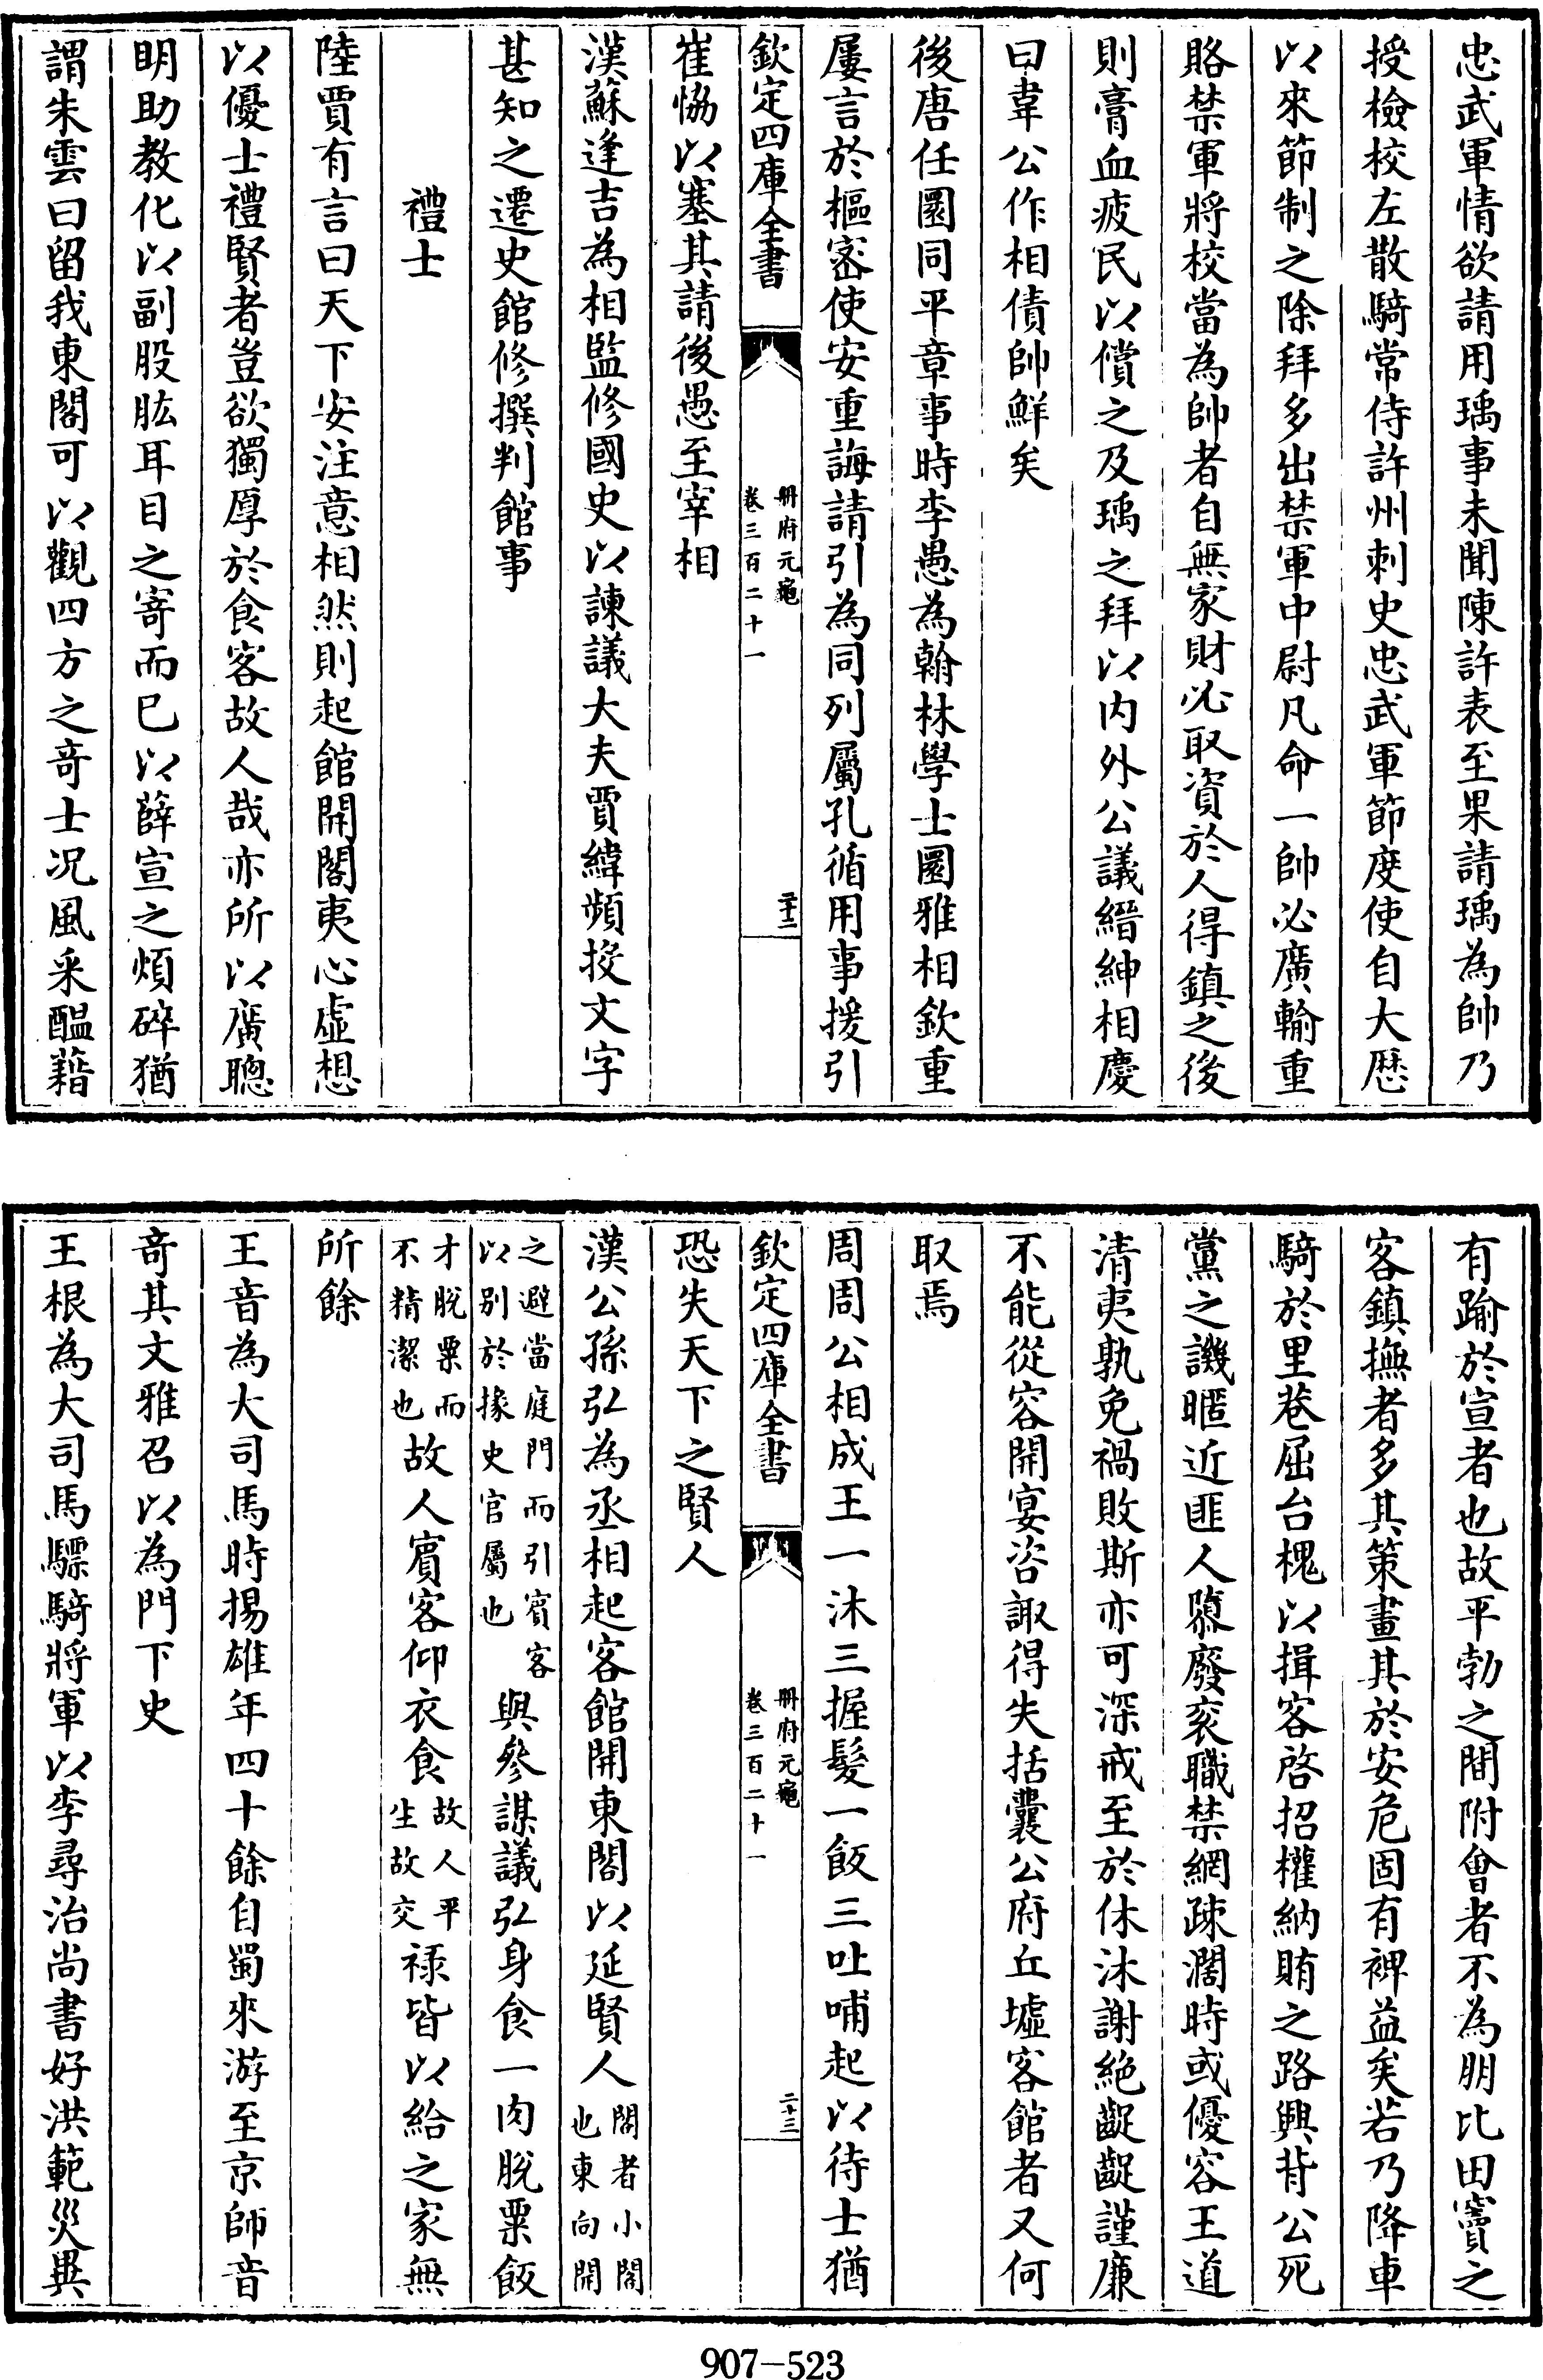 忠武軍情欲請用瑀事未聞陳許表至果請瑀為帥乃
授檢校左散騎常侍許州刺史忠武軍節度使自大歷
以來節制之除拜多出禁軍中尉凡命一帥必廣輸重
賂禁軍將校當為帥者自無家財必取資於人得鎮之後
則膏血疲民以償之及瑀之拜以内外公議縉紳相慶
曰韋公作相債帥鮮矣
後唐任圜同平章事時李愚為翰林學士圜雅相欽重
屢言於樞宻使安重誨請引為同列屬孔循用事援引
欽定四庫全書
冊府元龜
卷三百二十一
二十二
崔恊以塞其請後愚至宰相
漢蘇逢吉為相監修國史以諫議大夫賈緯頻投文字
甚知之遷史館修撰判館事
禮士
陸賈有言曰天下安注意相然則起館開閣夷心虚想
以優士禮賢者豈欲獨厚於食客故人哉亦所以廣聰
明助教化以副股肱耳目之寄而已以薛宣之煩碎猶
謂朱雲曰留我東閣可以觀四方之竒士况風采醖藉
有踰於宣者也故平勃之間附㑹者不為朋比田竇之
客鎮撫者多其策畫其於安危固有裨益矣若乃降車
騎於里巷屈台槐以揖客啓招權納賄之路興背公死
黨之譏暱近匪人隳廢衮職禁網疎濶時或優容王道
清夷孰免禍敗斯亦可深戒至於休沐謝絶齪齪謹廉
不能從容開宴咨諏得失括囊公府丘墟客館者又何
取焉
周周公相成王一沐三握髮一飯三吐哺起以待士猶
欽定四庫全書
冊府元龜
卷三百二十一
二十三
恐失天下之賢人
漢公孫弘為丞相起客館開東閤以延賢人閤者小閤也東向開
之避當庭門而引賓客以别於掾史官屬也與參謀議弘身食一肉脫粟飯
才脫粟而不精潔也故人賓客仰衣食故人平生故交禄皆以給之家無
所餘
王音為大司馬時揚雄年四十餘自蜀來游至京師音
竒其文雅召以為門下史
王根為大司馬驃騎將軍以李尋治尚書好洪範災異
907-523